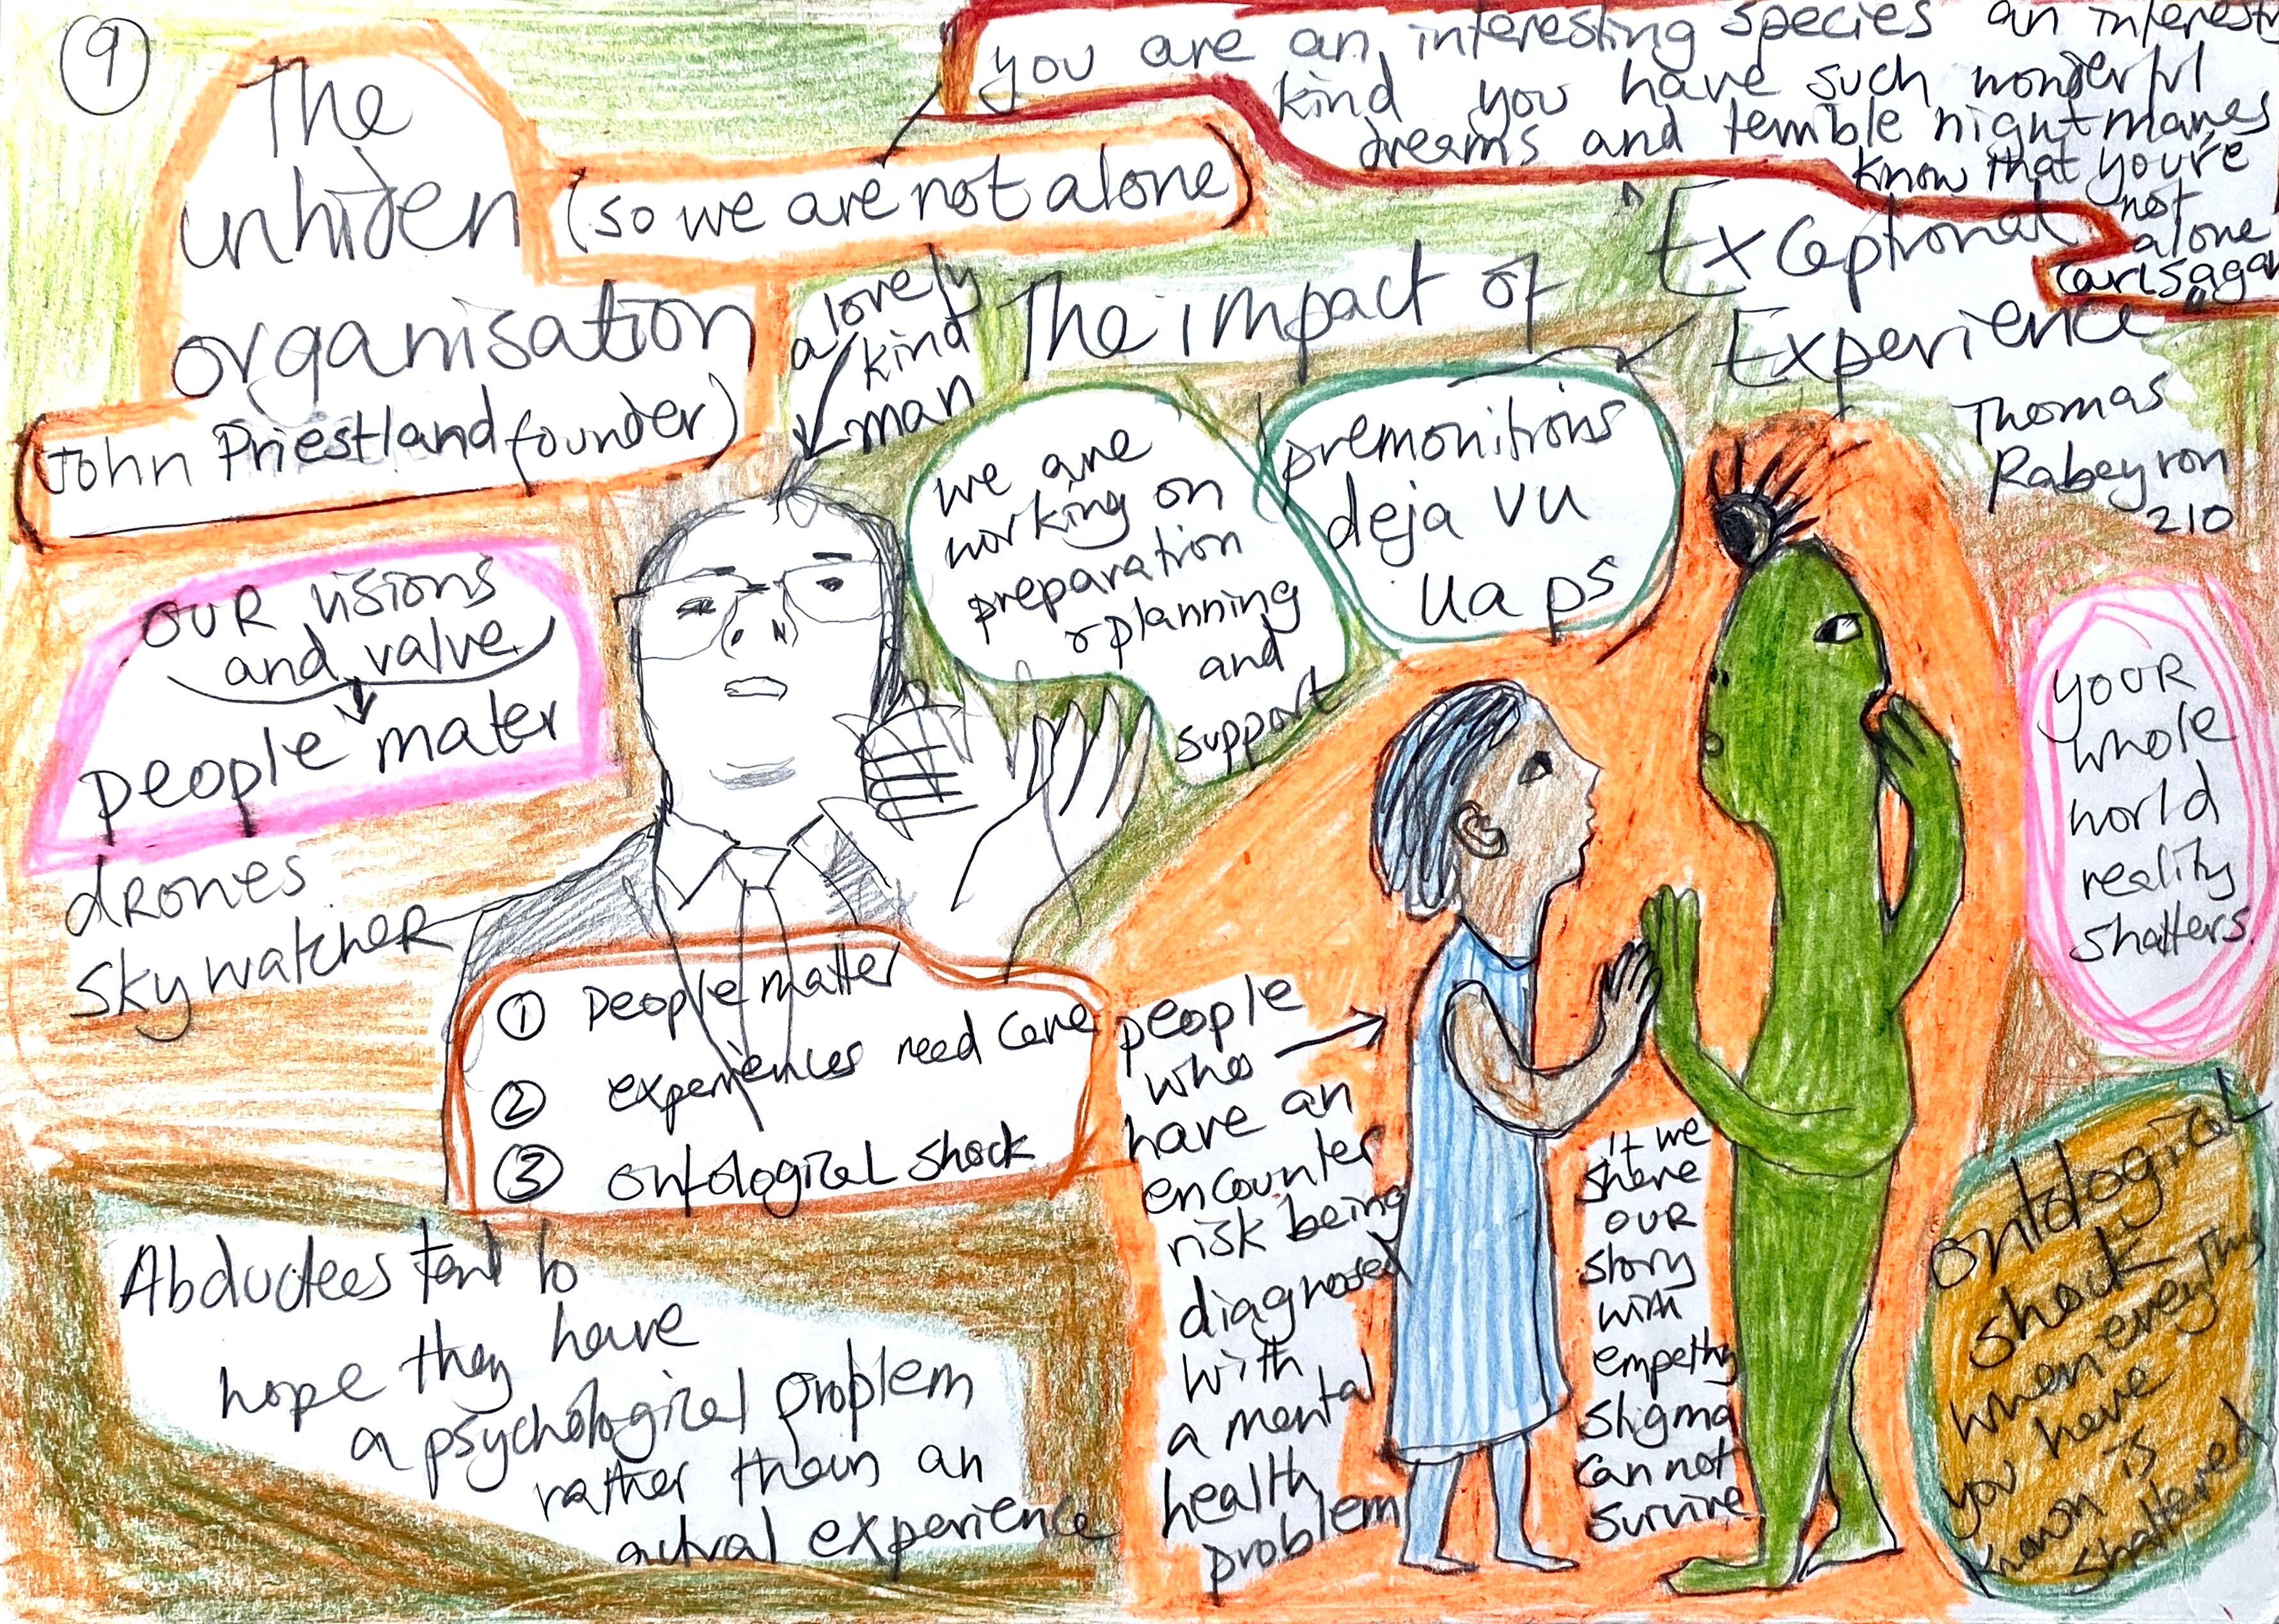 9
The
unhiden
organisation
John Priestland founder)
(so we are not alone)
you are an interesting species an interesti
kind you have such wonderful
dreams and terrible nightmares
know that you're
not
alone
carlsagan
a lovely
kind
man
The impact of
Exceptional
Experience
Thomas
Rabeyron
210
we are
working on
preparation
planning
and
support
premonitions
deja vu
uaps
OUR visions
and value
people mater
drones
skywatcher
① People matter
② experiences need care
③ ontological shock
Abductees tend to
hope they have
a psychological problem
rather than an
actual experience
people
who
have an
encounter
risk being
diagnosed
with
a mental
health
problem
if we
share
OUR
story
with
empathy
stigma
can not
survive
YOUR
whole
world
reality
shatters.
ontological
shock
when everything
you have
known is
shattered